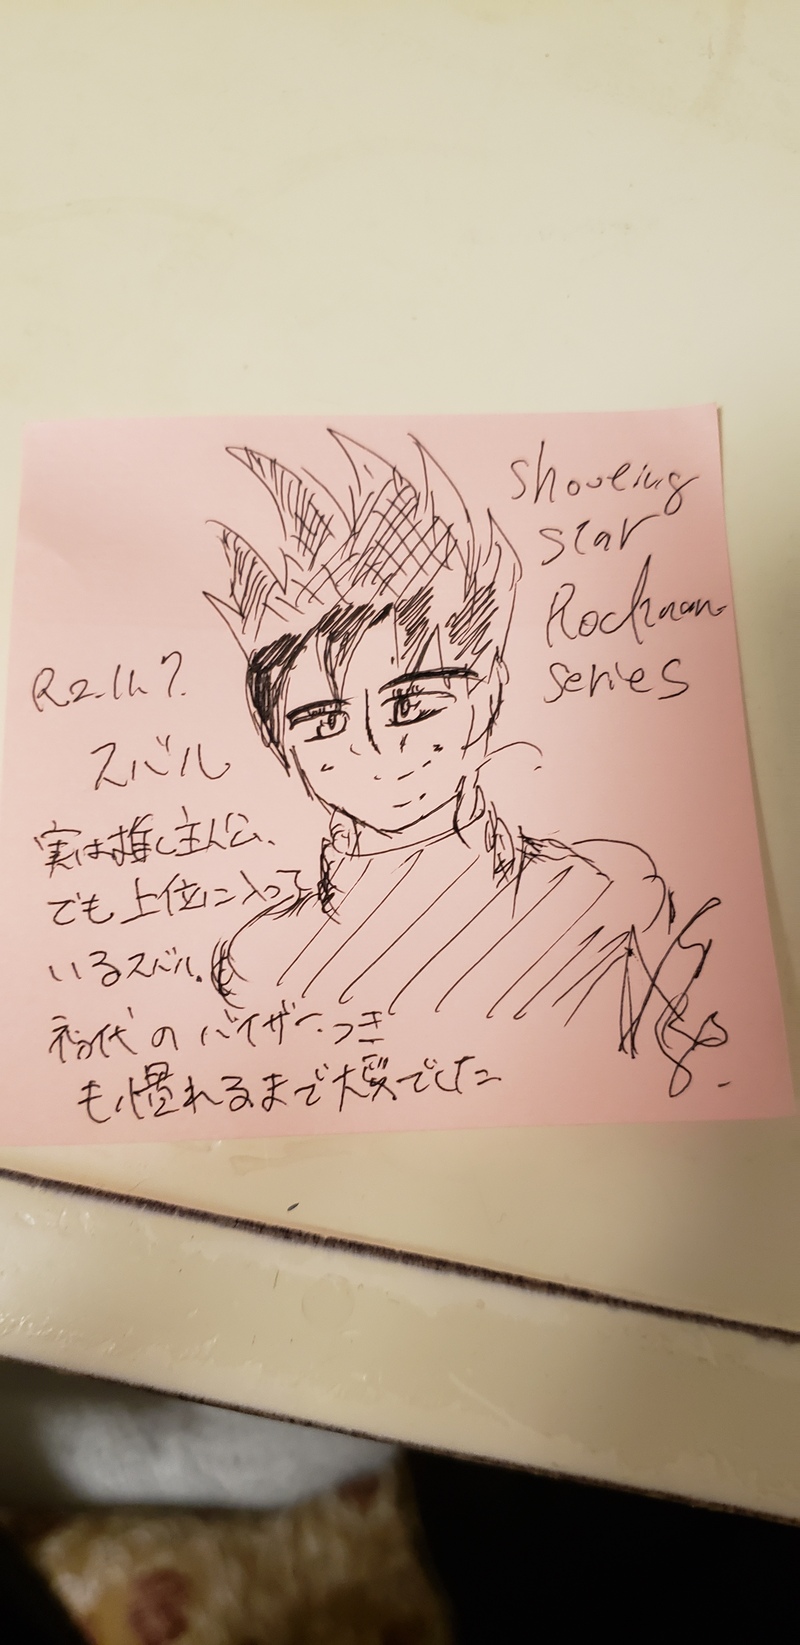 Shooting
Star
Rockman
series
R2.11.7.
スバル
実は推し主人公、
でも上位に入って
いるスバル。
初代のバイザーつき
も慣れるまで大変でした